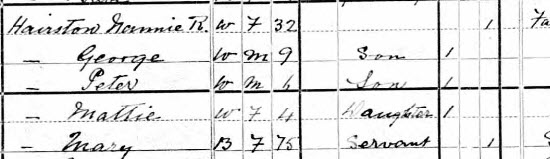 Hairston Nannie R. W F 32 1 Fa
— George W M 9 Son 1
— Peter W M 6 Son 1
— Mattie W F 4 Daughter 1
— Mary B F 75 Servant 1 S